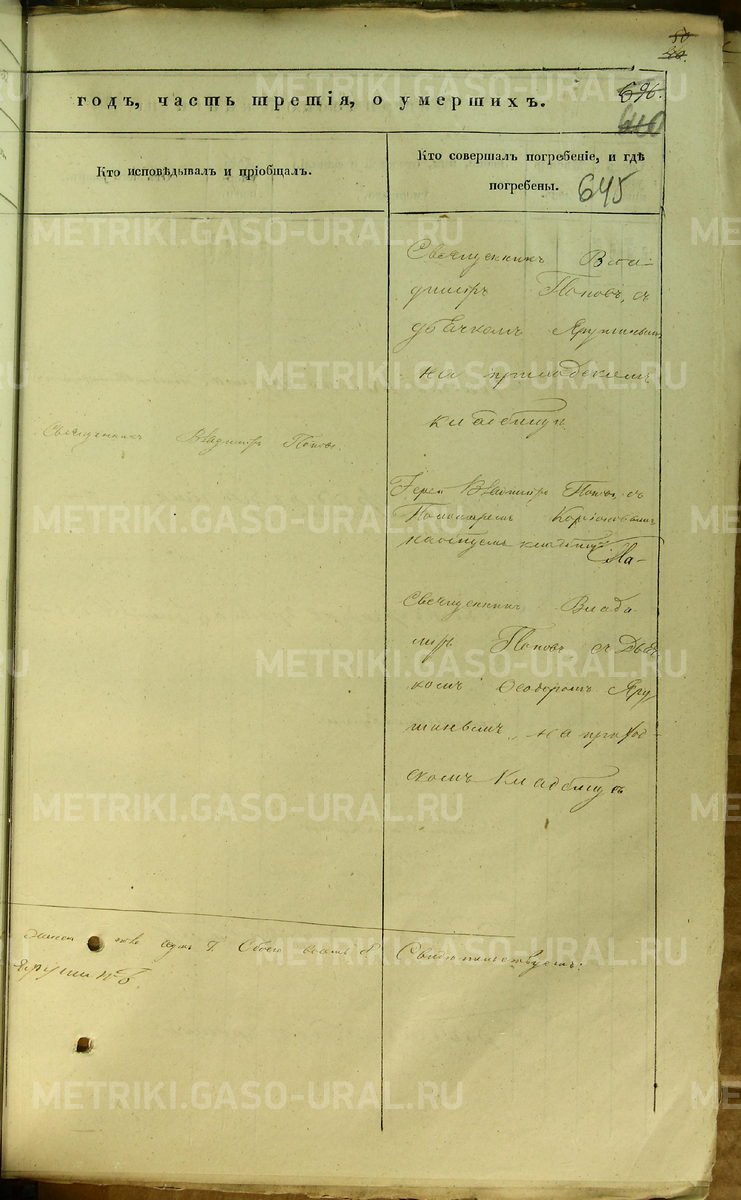 50
годъ, часть третія, о умершихъ.
696.
Кто исповѣдывалъ и пріобщалъ.
Кто совершалъ погребеніе, и гдѣ
погребены.
645
Священникъ Вла-
димиръ Поповъ, съ
дьячкомъ
на приходскомъ
кладбищѣ
Священникъ Владимиръ Поповъ.
Іерей Владимиръ Поповъ съ
Пономаремъ
на общемъ кладбищѣ
Священникъ Влади
миръ Поповъ съ Дьяч
комъ Ѳеодоромъ Яру
шинымъ, на приход-
скомъ кладбищѣ
Обоего
Свидѣтельствуемъ:
METRIKI.GASO-URAL.RU